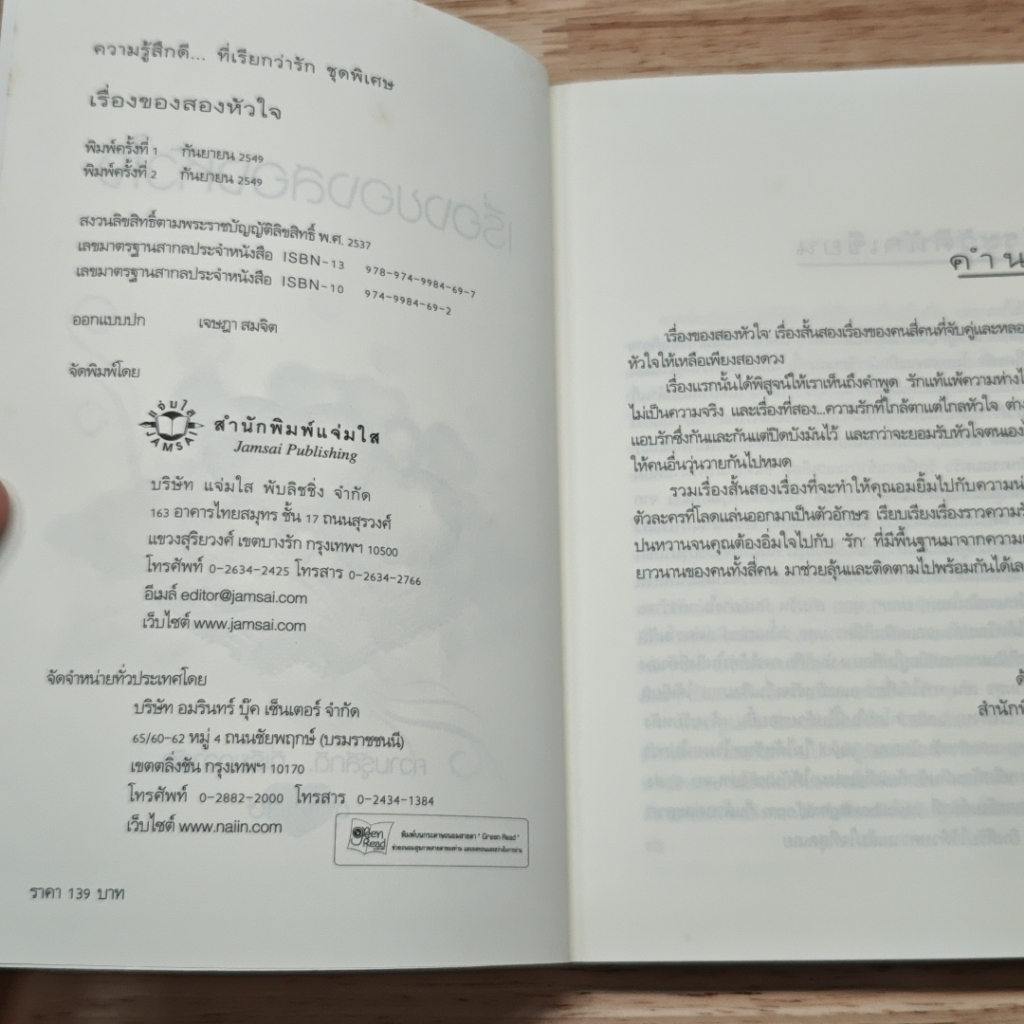 ความรู้สึกดี... ที่เรียกว่ารัก ชุดพิเศษ
เรื่องของสองหัวใจ
พิมพ์ครั้งที่ 1 กันยายน 2549
พิมพ์ครั้งที่ 2 กันยายน 2549
สงวนลิขสิทธิ์ตามพระราชบัญญัติลิขสิทธิ์ พ.ศ. 2537
เลขมาตรฐานสากลประจำหนังสือ ISBN-13 978-974-9984-69-7
เลขมาตรฐานสากลประจำหนังสือ ISBN-10 974-9984-69-2
ออกแบบปก เจษฎา สมจิต
จัดพิมพ์โดย
แจ่มใส
JAMSAI
สำนักพิมพ์แจ่มใส
Jamsai Publishing
บริษัท แจ่มใส พับลิชชิ่ง จำกัด
163 อาคารไทยสมุทร ชั้น 17 ถนนสุรวงศ์
แขวงสุริยวงศ์ เขตบางรัก กรุงเทพฯ 10500
โทรศัพท์ 0-2634-2425 โทรสาร 0-2634-2766
อีเมล์ editor@jamsai.com
เว็บไซต์ www.jamsai.com
จัดจำหน่ายทั่วประเทศโดย
บริษัท อมรินทร์ บุ๊ค เซ็นเตอร์ จำกัด
65/60-62 หมู่ 4 ถนนชัยพฤกษ์ (บรมราชชนนี)
เขตตลิ่งชัน กรุงเทพฯ 10170
โทรศัพท์ 0-2882-2000 โทรสาร 0-2434-1384
เว็บไซต์ www.naiin.com
Green Read
พิมพ์บนกระดาษถนอมสายตา "Green Read"
ราคา 139 บาท
คำน
เรื่องของสองหัวใจ' เรื่องสั้นสองเรื่องของคนสี่คนที่จับคู่และหลอ
หัวใจให้เหลือเพียงสองดวง
เรื่องแรกนั้นได้พิสูจน์ให้เราเห็นถึงคำพูด 'รักแท้แพ้ความห่างไ
ไม่เป็นความจริง และเรื่องที่สอง...ความรักที่ใกล้ตาแต่ไกลหัวใจ ต่าง
แอบรักซึ่งกันและกันแต่ปิดบังมันไว้ และกว่าจะยอมรับหัวใจตนเอง
ให้คนอื่นวุ่นวายกันไปหมด
รวมเรื่องสั้นสองเรื่องที่จะทำให้คุณอมยิ้มไปกับความน่
ตัวละครที่โลดแล่นออกมาเป็นตัวอักษร เรียบเรียงเรื่องราวความรั
ปนหวานจนคุณต้องอิ่มใจไปกับ 'รัก' ที่มีพื้นฐานมาจากความผ
ยาวนานของคนทั้งสี่คน มาช่วยลุ้นและติดตามไปพร้อมกันได้เล
ด้
สำนักพิ